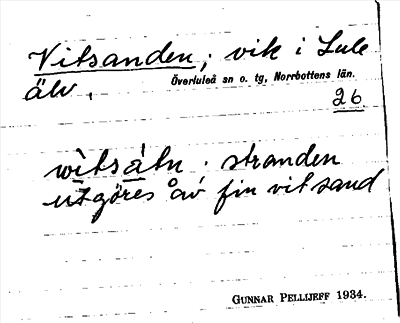 Vitsanden, vik i Lule
Överluleå sn o. tg, Norrbottens län.
älv.
26
wìtsàtn. stranden
utgöres av fin vit sand
GUNNAR PELLIJEFF 1934.